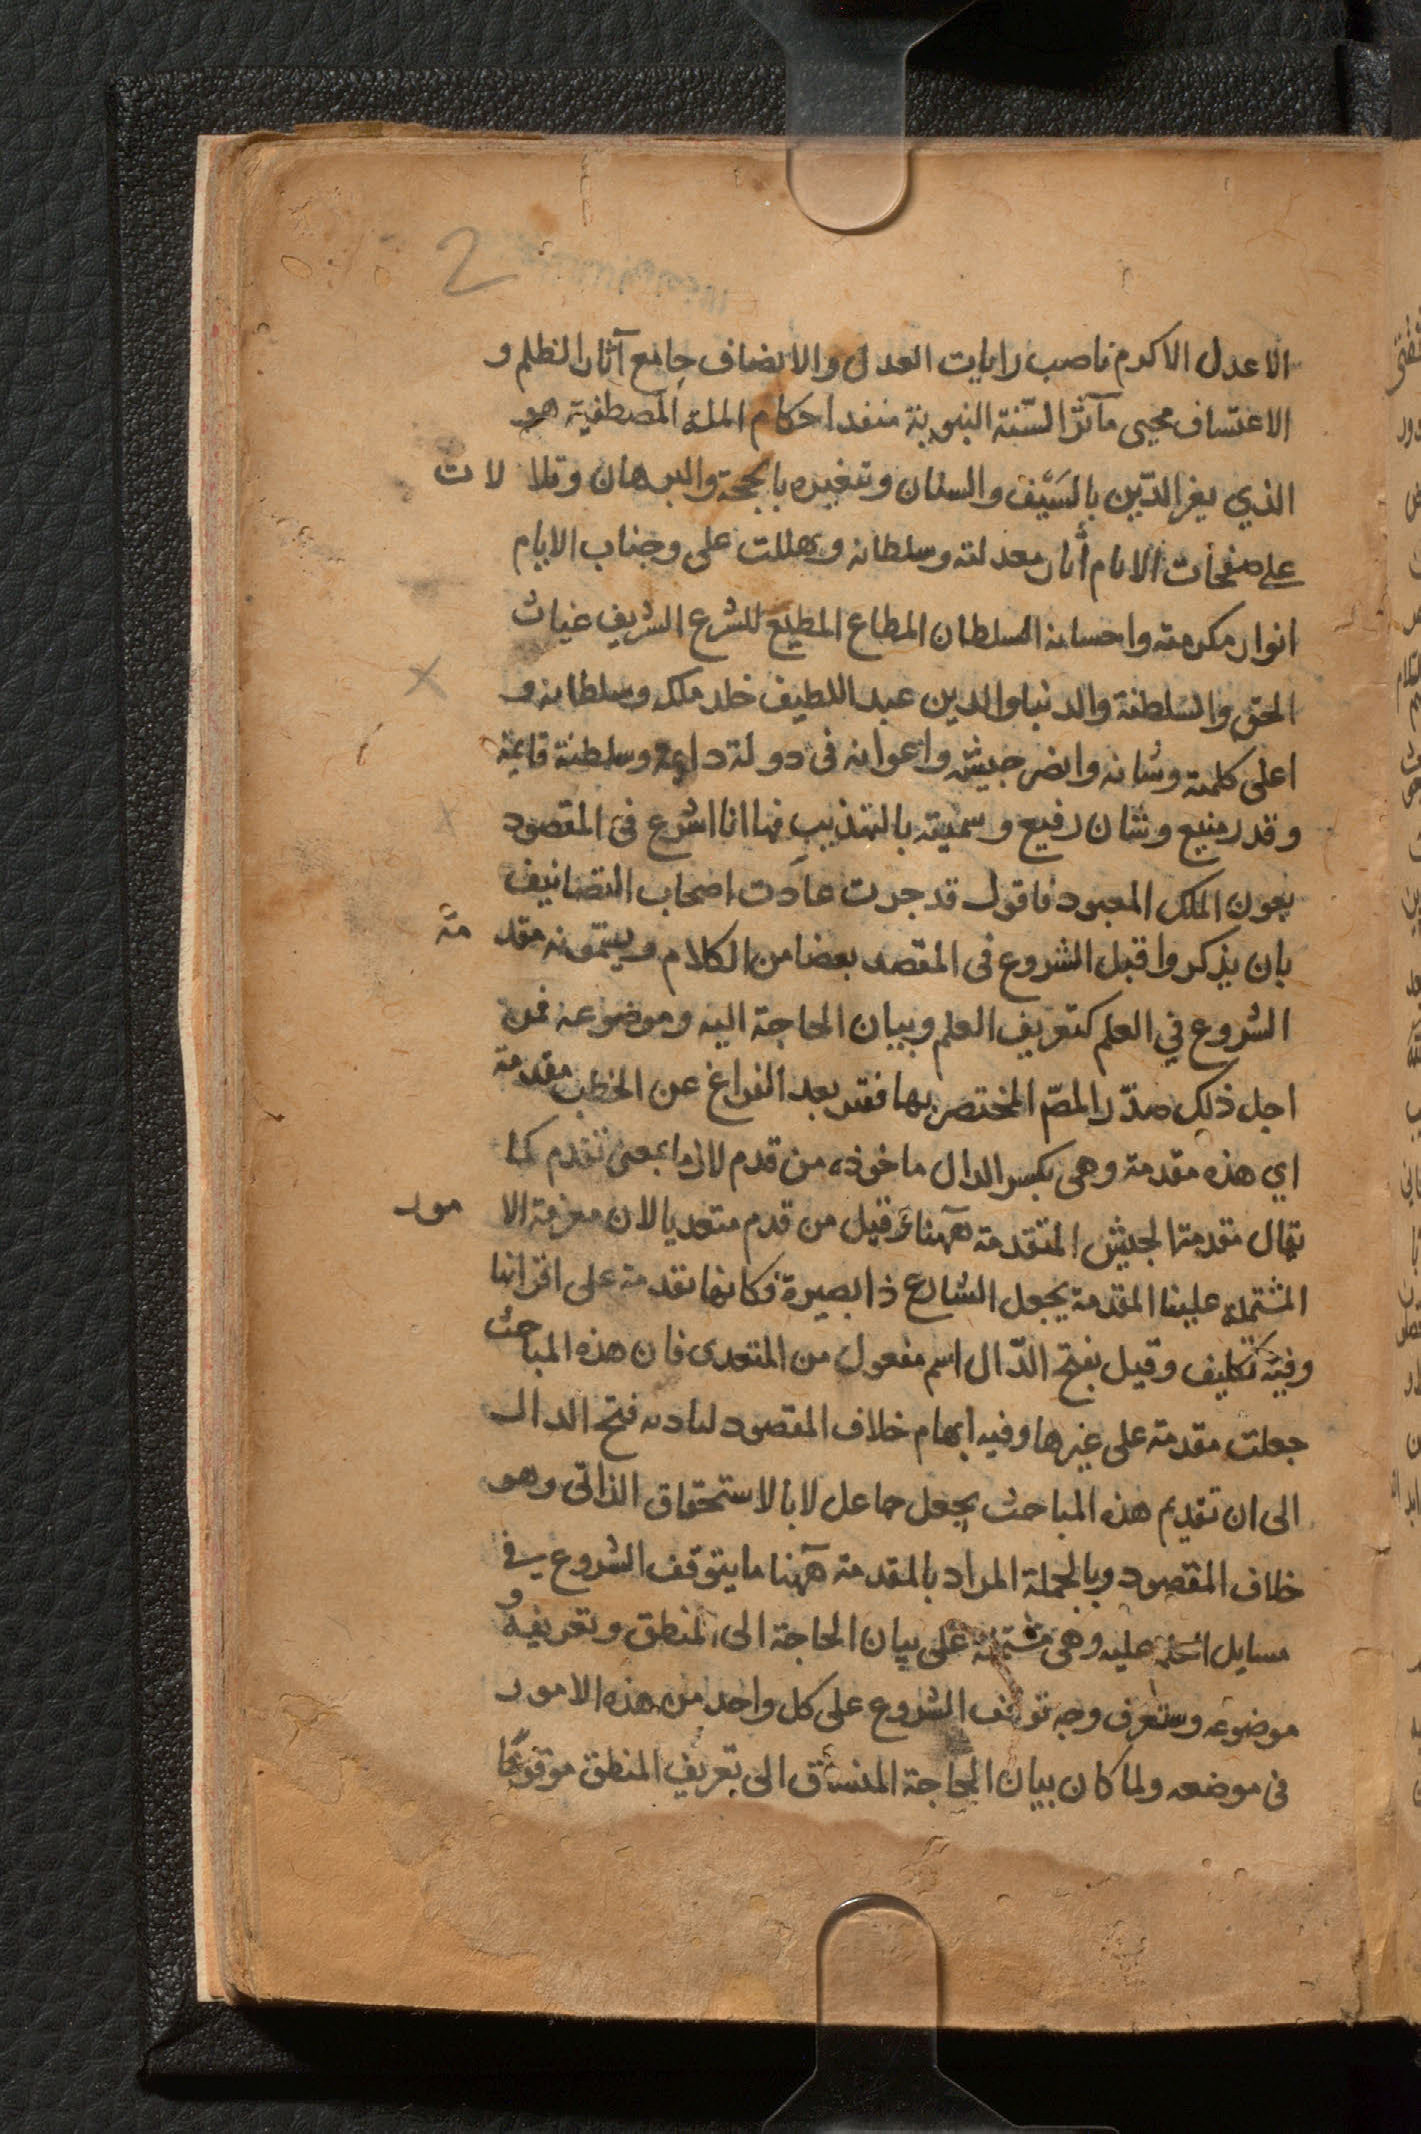 2
الاعدل الاكرم ناصب رايات العدل والانصاف جامع آثار الظلم و
الاعتساف محيى مآثر السّنة النبوية منفد احكام الملة المصطفية هو
الذي يغز الدّين بالسَيْف والسنان وتغييره بالحجة والبرهان وتلالات
على صفحات الانام أثار معدلته وسلطانه وهللت على وجناب الايام
انوار مكرمته واحسانه السلطان المطاع المطيع للشرع الشريف غياث
الحق والسلطنة والدنيا والدين عبد اللطيف خلد ملكه وسلطانه و
اعلى كلمته وشانه وانصر جيشه واعوانه فى دولة دايمة وسلطنة قايمة
وقدر منيع وشان رفيع وسميته بالتهذيب فها انا اشرع فى المقصود
بعون الملك المعبود فاقول قد جرت عادت اصحاب التصانيف
بان يذكروا قبل الشروع فى المقصد بعضا من الكلام ويسمّونه مقدمة
الشروع في العلم كتعريف العلم وبيان الحاجة اليه وموضوعه فمن
اجل ذلك صدّر المصّ المختصر بها فقتر بعد الفراغ عن الخطب مقدمة
اي هذه مقدمة وهى بكسر الدال ماخوذه من قدم لازما بمعنى تقدم كما
يقال مقدمة الجيش المتقدمة ههنا وقيل من قدم متعديا لان معرفة الامور
المشتملة علينا المقدمة يجعل الشارع ذا بصيرة فكانها تقدمه على اقرانها
وفيه تكليف وقيل بفتح الدّال اسم مفعول من المتعدى فان هذه المباحث
جعلت مقدمة على غيرها وفيه ابهام خلاف المقصود لتادىه فتح الدال
الى ان تقديم هذه المباحث بجعل جاعل لا بالاستحقاق الذاتى وهو
خلاف المقصود وبالجملة المراد بالمقدمة ههنا ما يتوقف الشروع فى
مسايل العلم عليه وهى مشتملة على بيان الحاجة الى المنطق وتعريفه و
موضوعه وستعرف وجه توقف الشروع على كل واحد من هذه الامور
فى موضعه ولما كان بيان الحاجة المنساق الى تعريف المنطق موقوعًا